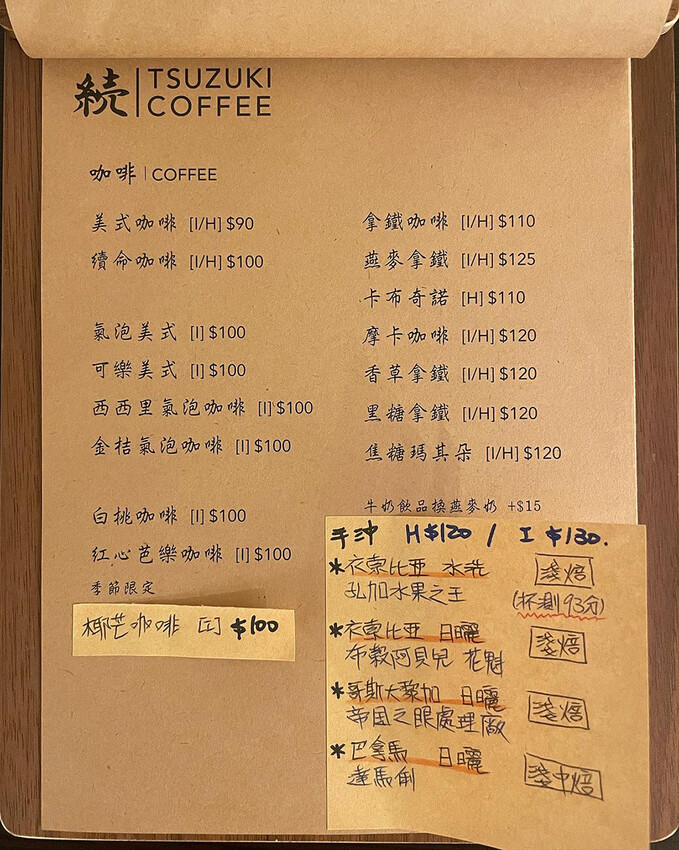 続 TSUZUKI
COFFEE
咖啡 | COFFEE
美式咖啡 [I/H] $90
續命咖啡 [I/H] $100
氣泡美式 [I] $100
可樂美式 [I] $100
西西里氣泡咖啡 [I] $100
金桔氣泡咖啡 [I] $100
白桃咖啡 [I] $100
紅心芭樂咖啡 [I] $100
季節限定
椰芒咖啡 [I] $100
拿鐵咖啡 [I/H] $110
燕麥拿鐵 [I/H] $125
卡布奇諾 [H] $110
摩卡咖啡 [I/H] $120
香草拿鐵 [I/H] $120
黑糖拿鐵 [I/H] $120
焦糖瑪其朵 [I/H] $120
牛奶飲品換燕麥奶 +$15
手沖 H $120 / I $130.
*衣索比亞 水洗 淺焙
孔加水果之王 (杯測93分)
*衣索比亞 日曬 淺焙
布穀阿貝兒 花魁
*哥斯大黎加 日曬 淺焙
帝国之眼處理廠
*巴拿馬 日曬 淺中焙
達馬俐